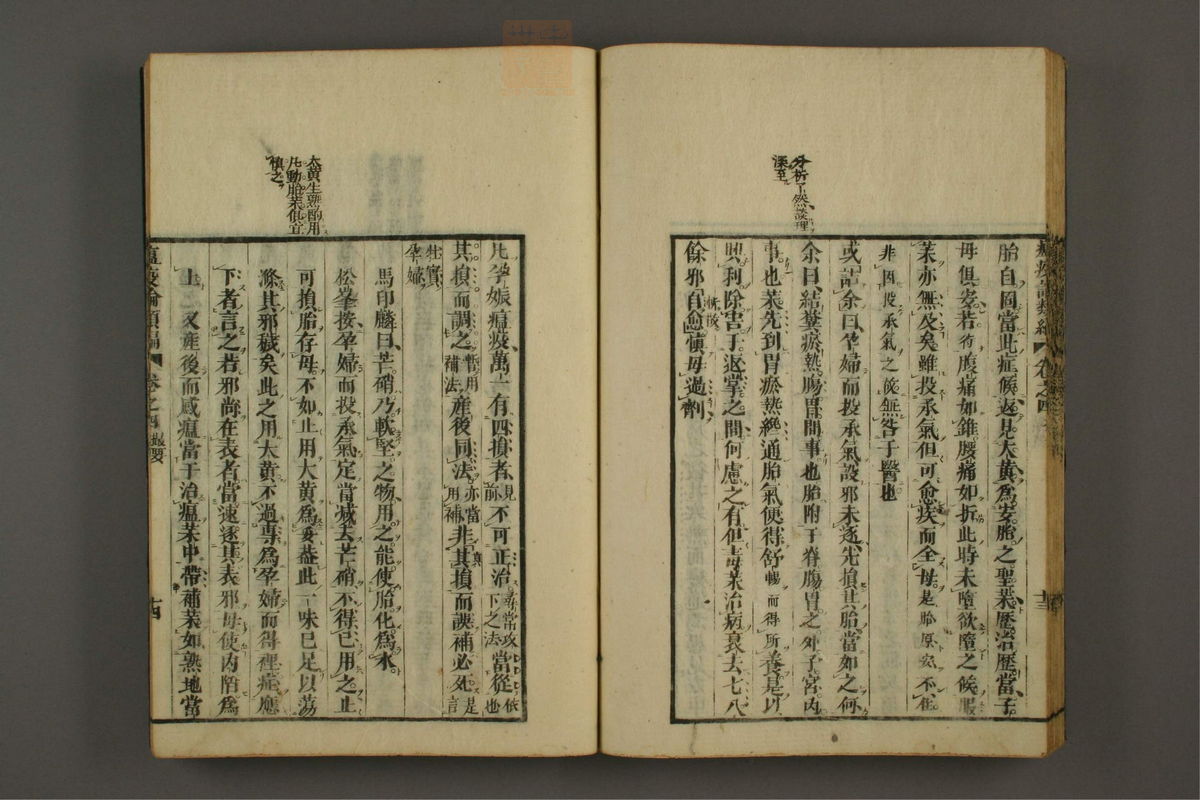 分析了然談理
深至
胎自固當此症候返見大黄為安胎之聖藥歷治歷當子
母俱安若腹痛如錐腰痛如折此時未墮欲墮之候服
藥亦無及矣雖投承氣但可愈疾而全母是胎原安不
非因投承氣之後無咎于醫也
或詰余曰孕婦而投承氣設邪未逐先損其胎當如之何
余曰結糞瘀熱腸胃間事也胎附于脊腸胃之外子宮內
事也藥先到胃瘀熱纔通胎氣便得舒暢而得所養是以
興利除害于返掌之間何慮之有但毒藥治病衰去七八
餘邪自愈慎毋過劑
大黄生熟酌用
凡動胎藥俱宜
慎之
凡孕娠瘟疫萬一有四損者見前不可正治尋常攻下之法當從依
其損而調之暫用補法產後同法亦當用補非其損而誤補必死言是
壯實
孕婦
馬印麟曰芒硝乃軟堅之物用之能使胎化為水
松峯按孕婦而投承氣定當減去芒硝不得已用之止
可損胎存母不如止用大黄為妥蓋此一味已足以蕩
滌其邪穢矣此之用大黄不過專為孕婦而得裡症應
下者言之若邪尚在表者當速逐其表邪毋使內陷為
上又產後而感瘟當于治瘟藥中帶補藥如熟地當
瘟疫論類編
卷之四
撮要
十四